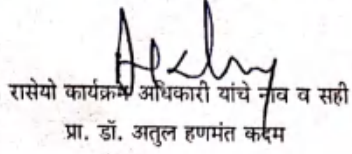 रासेयो कार्यक्रम अधिकारी यांचे नाव व सही
प्रा. डॉ. अतुल हणमंत कदम